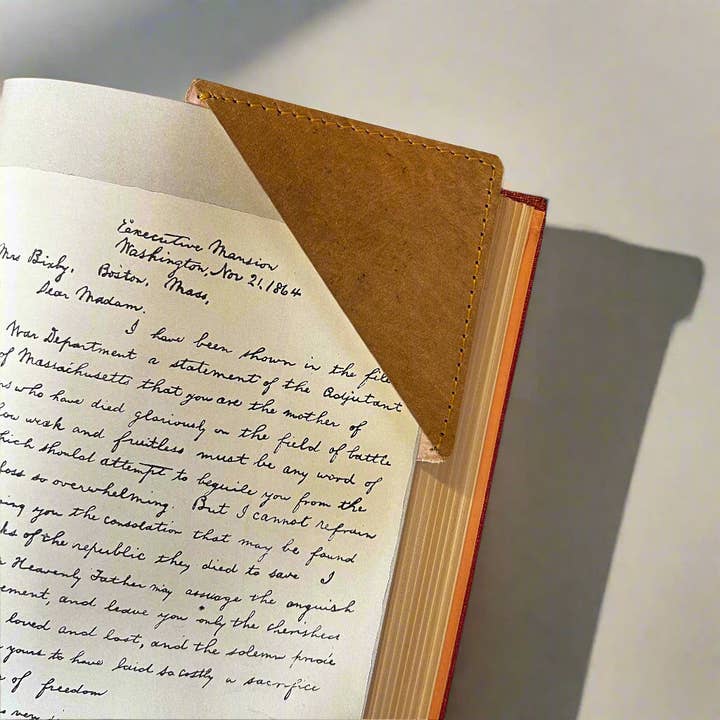 Executive Mansion
Washington, Nov 21, 1864
Mrs Bixby, Boston, Mass,
Dear Madam.
I have been shown in the file
War Department a statement of the Adjutant
of Massachusetts that you are the mother of
who have died gloriously on the field of battle
weak and fruitless must be any word of
which should attempt to beguile you from the
loss so overwhelming. But I cannot refrain
you the consolation that may be found
of the republic they died to save I
Heavenly Father may assuage the anguish
and leave you only the cherished
loved and lost, and the solemn pride
yours to have laid so costly a sacrifice
of freedom